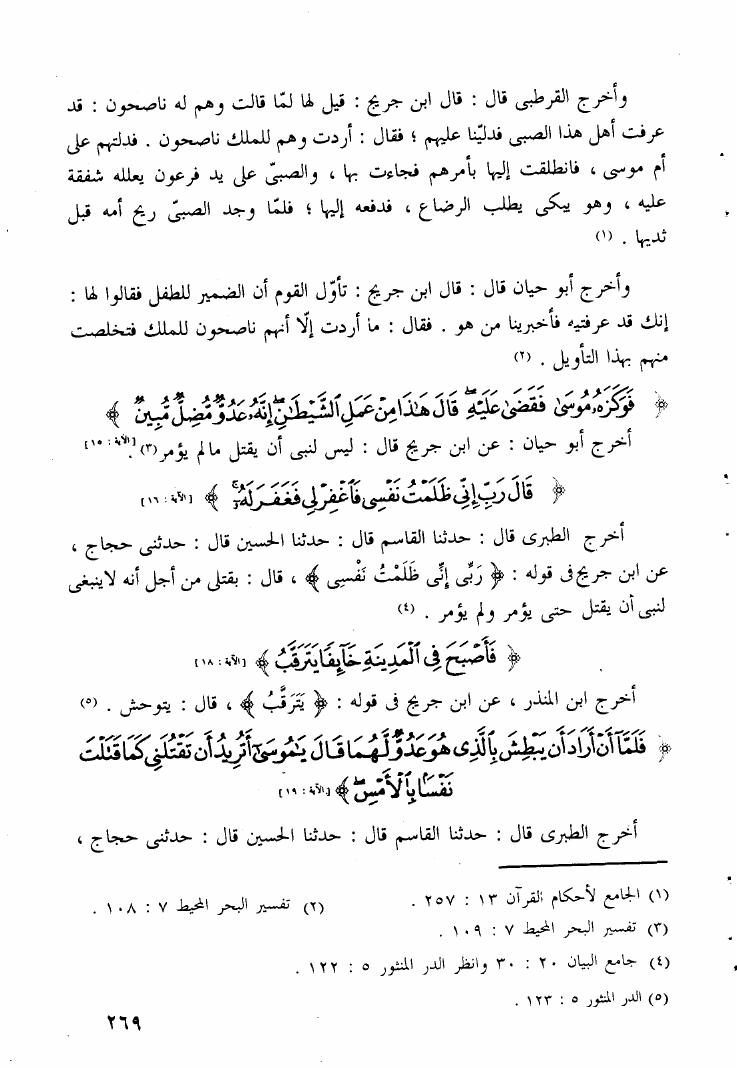 وأخرج القرطبى قال : قال ابن جريج : قيل لها لمّا قالت وهم له ناصحون : قد
عرفت أهل هذا الصبى فدليّنا عليهم ؛ فقال : أردت وهم للملك ناصحون . فدلتهم على
أم موسى ، فانطلقت إليها بأمرهم فجاءت بها ، والصبىّ على يد فرعون يعلله شفقة
عليه ، وهو يبكى يطلب الرضاع ، فدفعه إليها ؛ فلمّا وجد الصبىّ ريح أمه قبل
ثديها . (١)
وأخرج أبو حيان قال : قال ابن جريج : تأوّل القوم أن الضمير للطفل فقالوا لها :
إنك قد عرفتيه فأخبرينا من هو . فقال : ما أردت إلّا أنهم ناصحون للملك فتخلصت
منهم بهذا التأويل . (٢)
﴿ فَوَكَزَهُۥ مُوسَىٰ فَقَضَىٰ عَلَيْهِۖ قَالَ هَٰذَا مِنْ عَمَلِ ٱلشَّيْطَٰنِۖ إِنَّهُۥ عَدُوٌّ مُّضِلٌّ مُّبِينٌ ﴾
أخرج أبو حيان : عن ابن جريج قال : ليس لنبى أن يقتل مالم يؤمر (٣) . [الآية : ١٥]
﴿ قَالَ رَبِّ إِنِّى ظَلَمْتُ نَفْسِى فَٱغْفِرْ لِى فَغَفَرَ لَهُۥٓۚ ﴾ [الآية : ١٦]
أخرج الطبرى قال : حدثنا القاسم قال : حدثنا الحسين قال : حدثنى حجاج ،
عن ابن جريج فى قوله : ﴿ رَبِّى إِنِّى ظَلَمْتُ نَفْسِى ﴾ ، قال : بقتلى من أجل أنه لاينبغى
لنبى أن يقتل حتى يؤمر ولم يؤمر . (٤)
﴿ فَأَصْبَحَ فِى ٱلْمَدِينَةِ خَآئِفًا يَتَرَقَّبُ ﴾ [الآية : ١٨]
أخرج ابن المنذر ، عن ابن جريج فى قوله : ﴿ يَتَرَقَّبُ ﴾ ، قال : يتوحش . (٥)
﴿ فَلَمَّآ أَنْ أَرَادَ أَن يَبْطِشَ بِٱلَّذِى هُوَ عَدُوٌّ لَّهُمَا قَالَ يَٰمُوسَىٰٓ أَتُرِيدُ أَن تَقْتُلَنِى كَمَا قَتَلْتَ
نَفْسًۢا بِٱلْأَمْسِۖ ﴾ [الآية : ١٩]
أخرج الطبرى قال : حدثنا القاسم قال : حدثنا الحسين قال : حدثنى حجاج ،
(١) الجامع لأحكام القرآن ١٣ : ٢٥٧ .
(٢) تفسير البحر المحيط ٧ : ١٠٨ .
(٣) تفسير البحر المحيط ٧ : ١٠٩ .
(٤) جامع البيان ٢٠ : ٣٠ وانظر الدر المنثور ٥ : ١٢٢ .
(٥) الدر المنثور ٥ : ١٢٣ .
٢٦٩